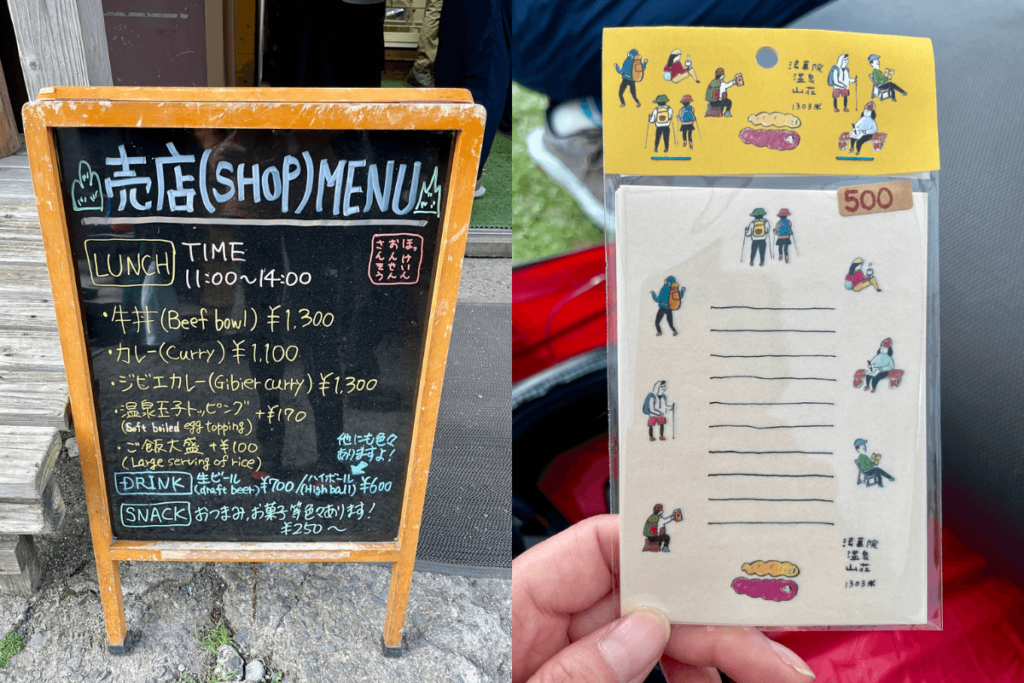 売店(SHOP)MENU
LUNCH TIME
11:00～14:00
ほっけいん
おんせん
さんそう
・牛丼(Beef bowl) ¥1,300
・カレー(Curry) ¥1,100
・ジビエカレー(Gibier curry) ¥1,300
・温泉玉子トッピング +¥170
(Soft boiled egg topping)
・ご飯大盛 +¥100
(Large serving of rice)
他にも色々
ありますよ!
DRINK 生ビール(draft beer) ¥700/ハイボール(High ball) ¥600
SNACK おつまみ,お菓子等色々あります!
¥250～
法華院
温泉
山荘
1303米
500
法華院
温泉
山荘
1303米